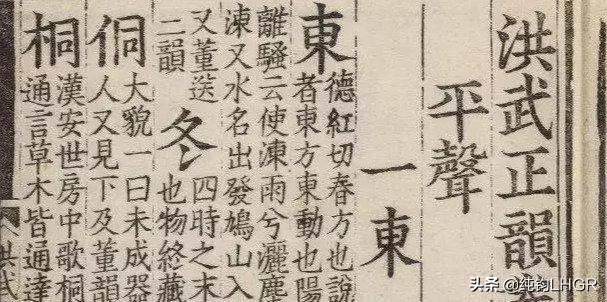 洪武正韻
平聲
一東
東
德紅切春方也說
者東方東動也陽
離騷云使涷雨兮灑塵
涷又水名出發鳩山入
又董送
二韻
冬
四時之末
也物終藏
侗
大貌一曰未成器
人又見下及董韻
桐
漢安世房中歌桐
通言草木皆通達
洪武
头条 @纯钧LHGR